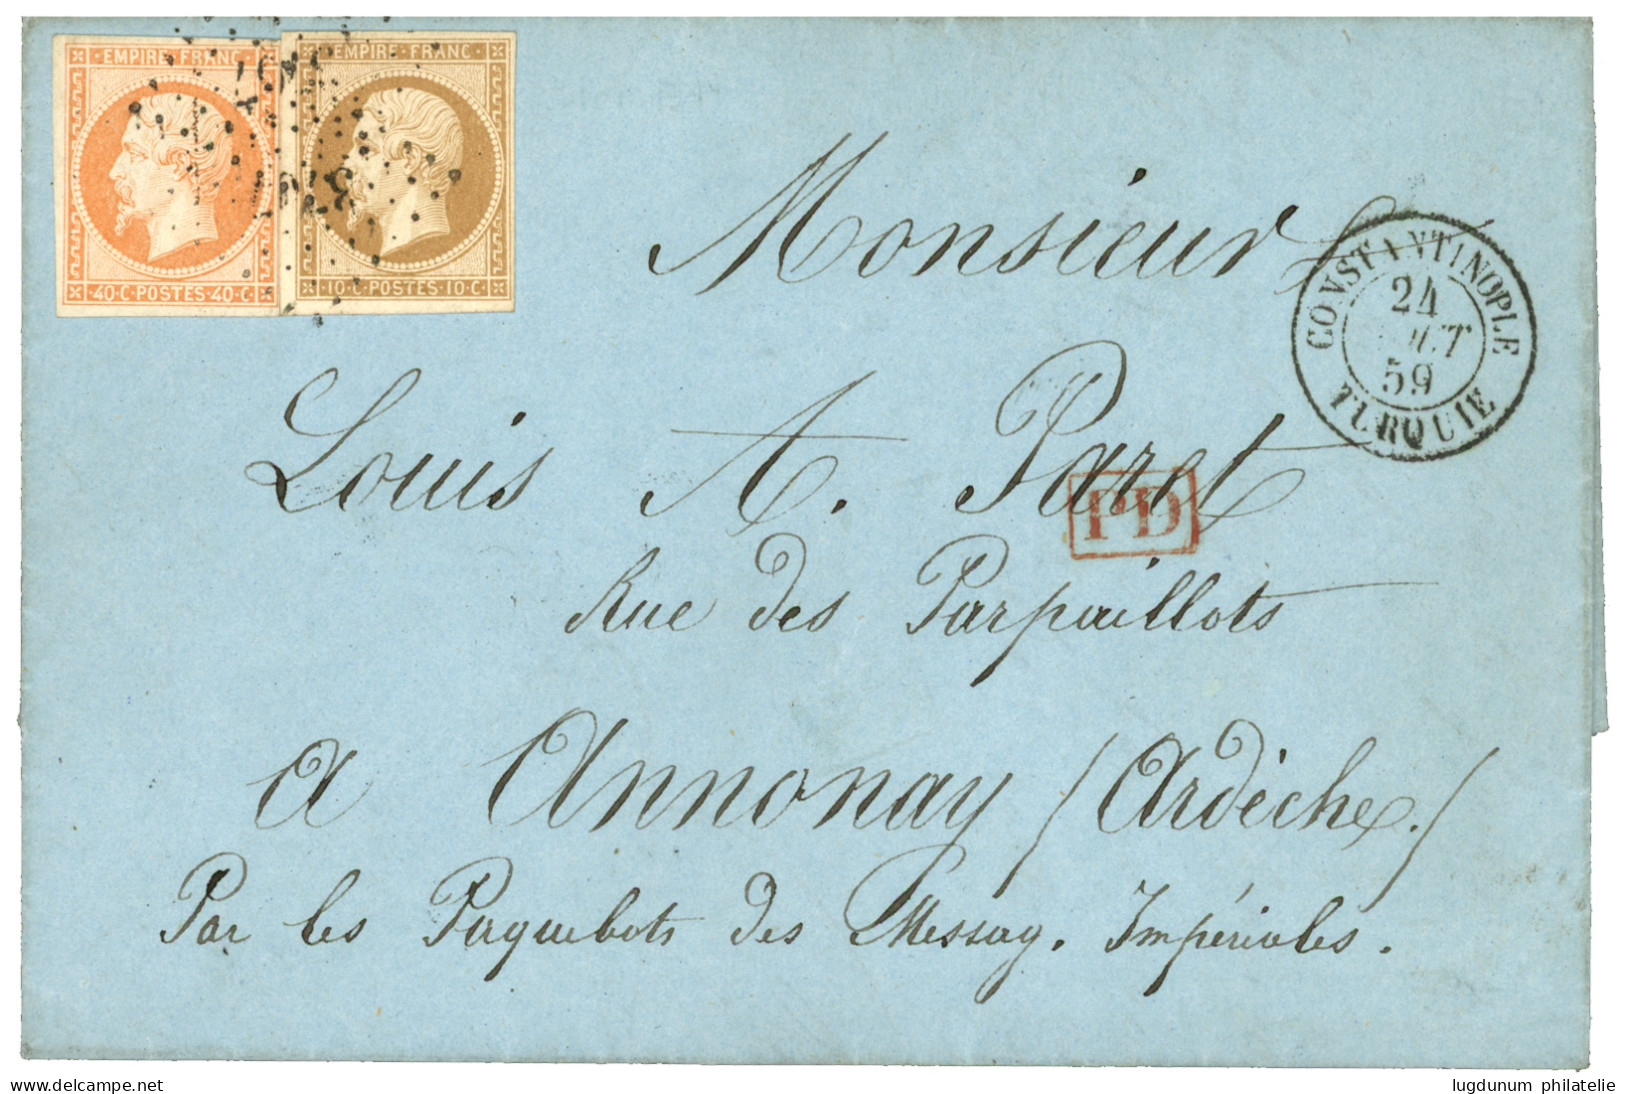 EMPIRE · FRANC ·
40 · C · POSTES · 40 · C
EMPIRE · FRANC ·
10 · C · POSTES · 10 · C ·
Monsieur
CONSTANTINOPLE
24
59
TURQUIE
Louis A. Paret
PD
Rue des Parpaillots
a Annonay / Ardèche. /
Par les Paquebots des Messag. Impériales.
delcampe.net
lugdunum philatelie